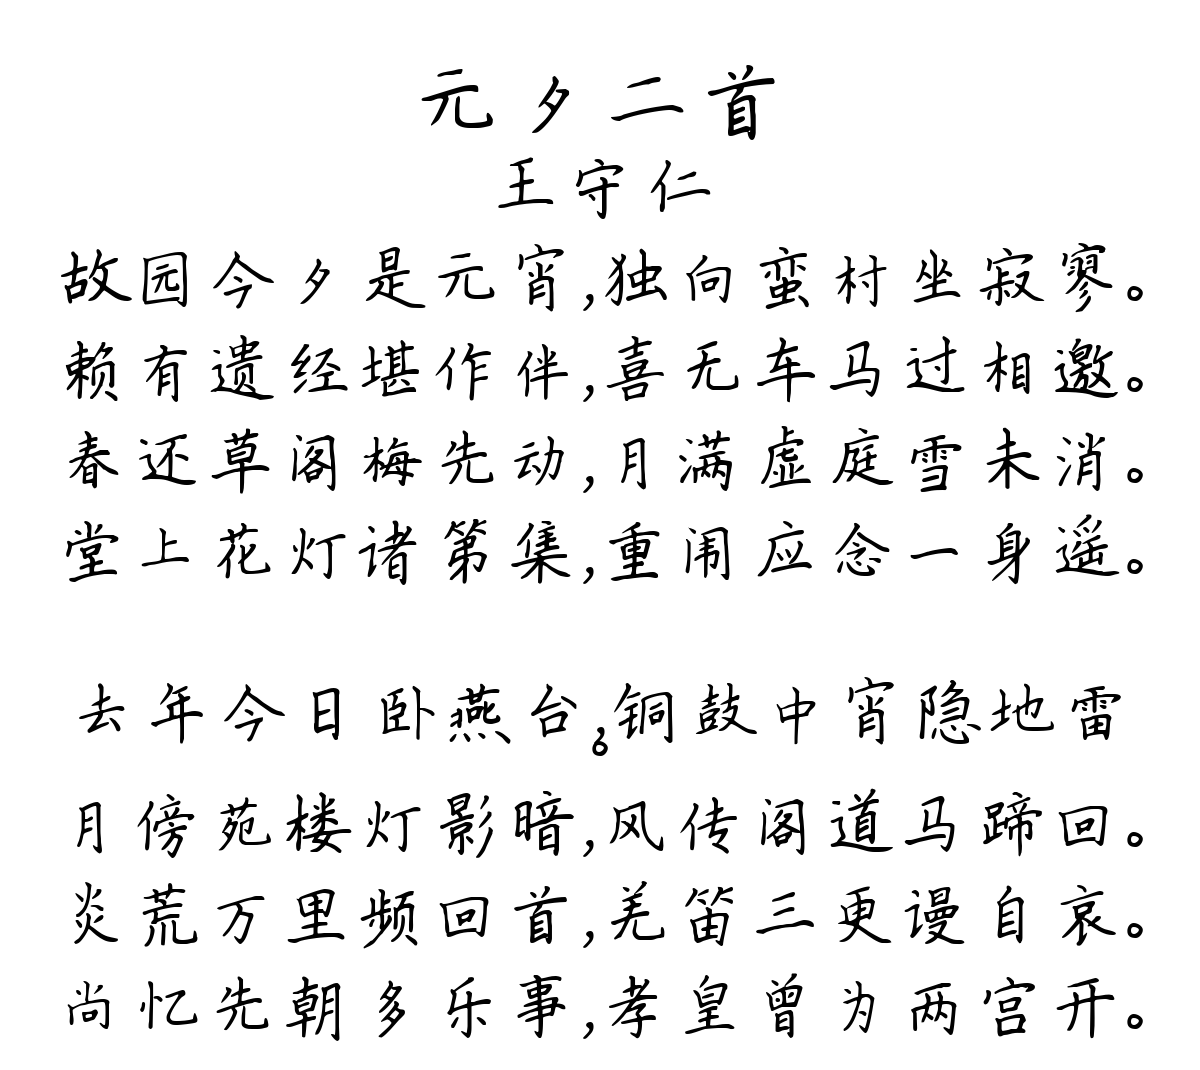 元夕二首
王守仁
故园今夕是元宵,独向蛮村坐寂寥。
赖有遗经堪作伴,喜无车马过相邀。
春还草阁梅先动,月满虚庭雪未消。
堂上花灯诸第集,重闹应念一身遥。
去年今日卧燕台,。铜鼓中宵隐地雷
月傍苑楼灯影暗,风传阁道马蹄回。
炎荒万里频回首,羌笛三更谩自哀。
尚忆先朝多乐事,孝皇曾为两宫开。